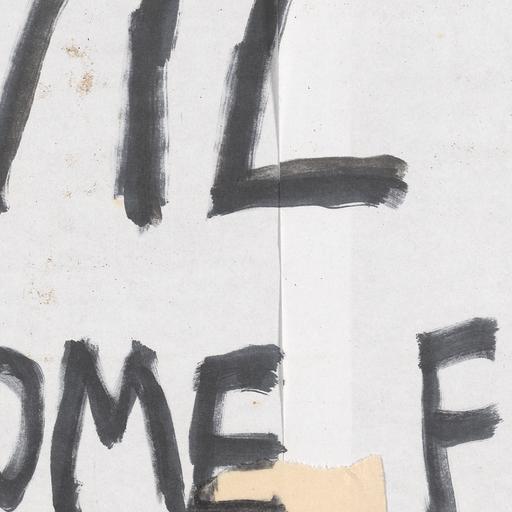 IL
OME F